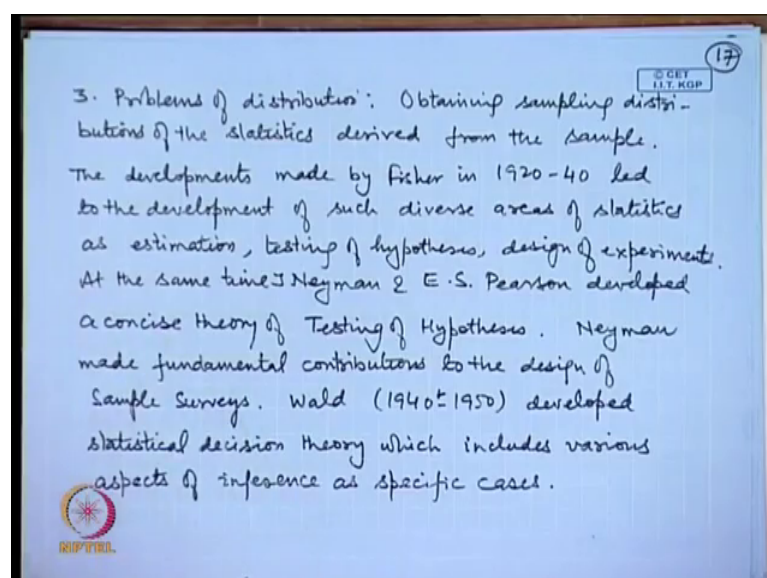 17
© CET
I.I.T. KGP
3. Problems of distribution: Obtaining sampling distri-
butions of the statistics derived from the sample.
The developments made by Fisher in 1920-40 led
to the development of such diverse areas of statistics
as estimation, testing of hypotheses, design of experiments.
At the same time J Neyman & E.S. Pearson developed
a concise theory of Testing of Hypotheses. Neyman
made fundamental contributions to the design of
Sample Surveys. Wald (1940-1950) developed
statistical decision theory which includes various
aspects of inference as specific cases.
NPTEL